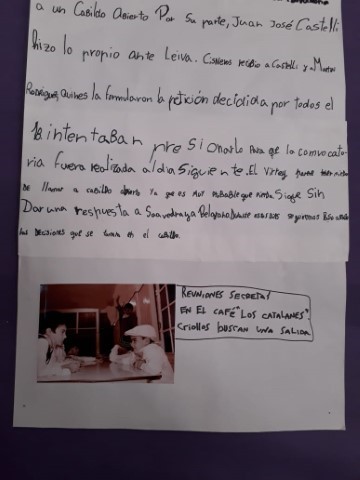 a un Cabildo Abierto Por Su parte, Juan José Castelli
hizo lo propio ante Leiva. Cisneros recibio a Castelli y a Martin
Rodriguez, Quines la formularon la petición decidida por todos el
intentaban presionarlo para que la convocato
ria fuera realizada al dia siguiente. El Virrey
de llamar a cabildo abierto ya que es muy probable que Sigue Sin
Dar una respuesta a Saavedra y a Belgrano
las decisiones que se toman en el cabildo.
REUNIONES SECRETAS
EN EL CAFÉ "LOS CATALANES"
CRIOLLOS BUSCAN UNA SALIDA